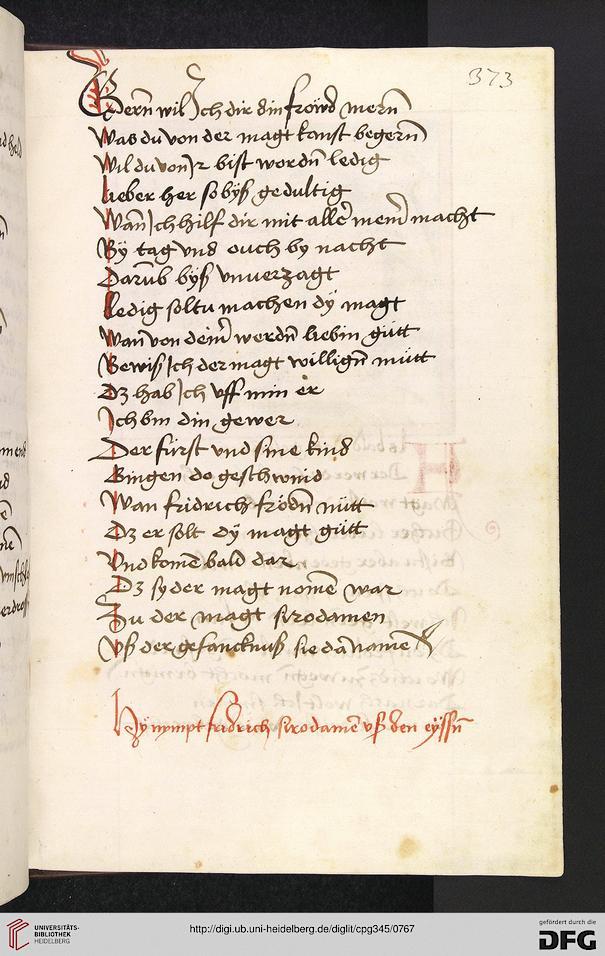 373
Gern wil Ich dir din fröwd mern
Was du von der magt kanst begern
Wil du von Ir bist wordn ledig
Lieber her so byß gedultig
Wan Ich hilf dir mit aller mein macht
By tag vnd ouch by nacht
Darūb byß vnuerzagt
Ledig soltu machen dÿ magt
Wan von deim werdn liebin gůtt
Bewiß Ich der magt willign můtt
Dz hab Ich vff min er
Ich bin din gewer
Der fürst vnd sine kind
Gingen do geschwind
Wan fridrich frödn nütt
Dz er solt dÿ magt gütt
Vnd komē bald dar
Dz sy der magt nomē war
Zu der magt sirodamen
Vß der gefancknuß sie dā namē
Hÿ nympt fridrich sirodamē vß den eyßn
UNIVERSITÄTS-
BIBLIOTHEK
HEIDELBERG
http://digi.ub.uni-heidelberg.de/diglit/cpg345/0767
gefördert durch die
DFG